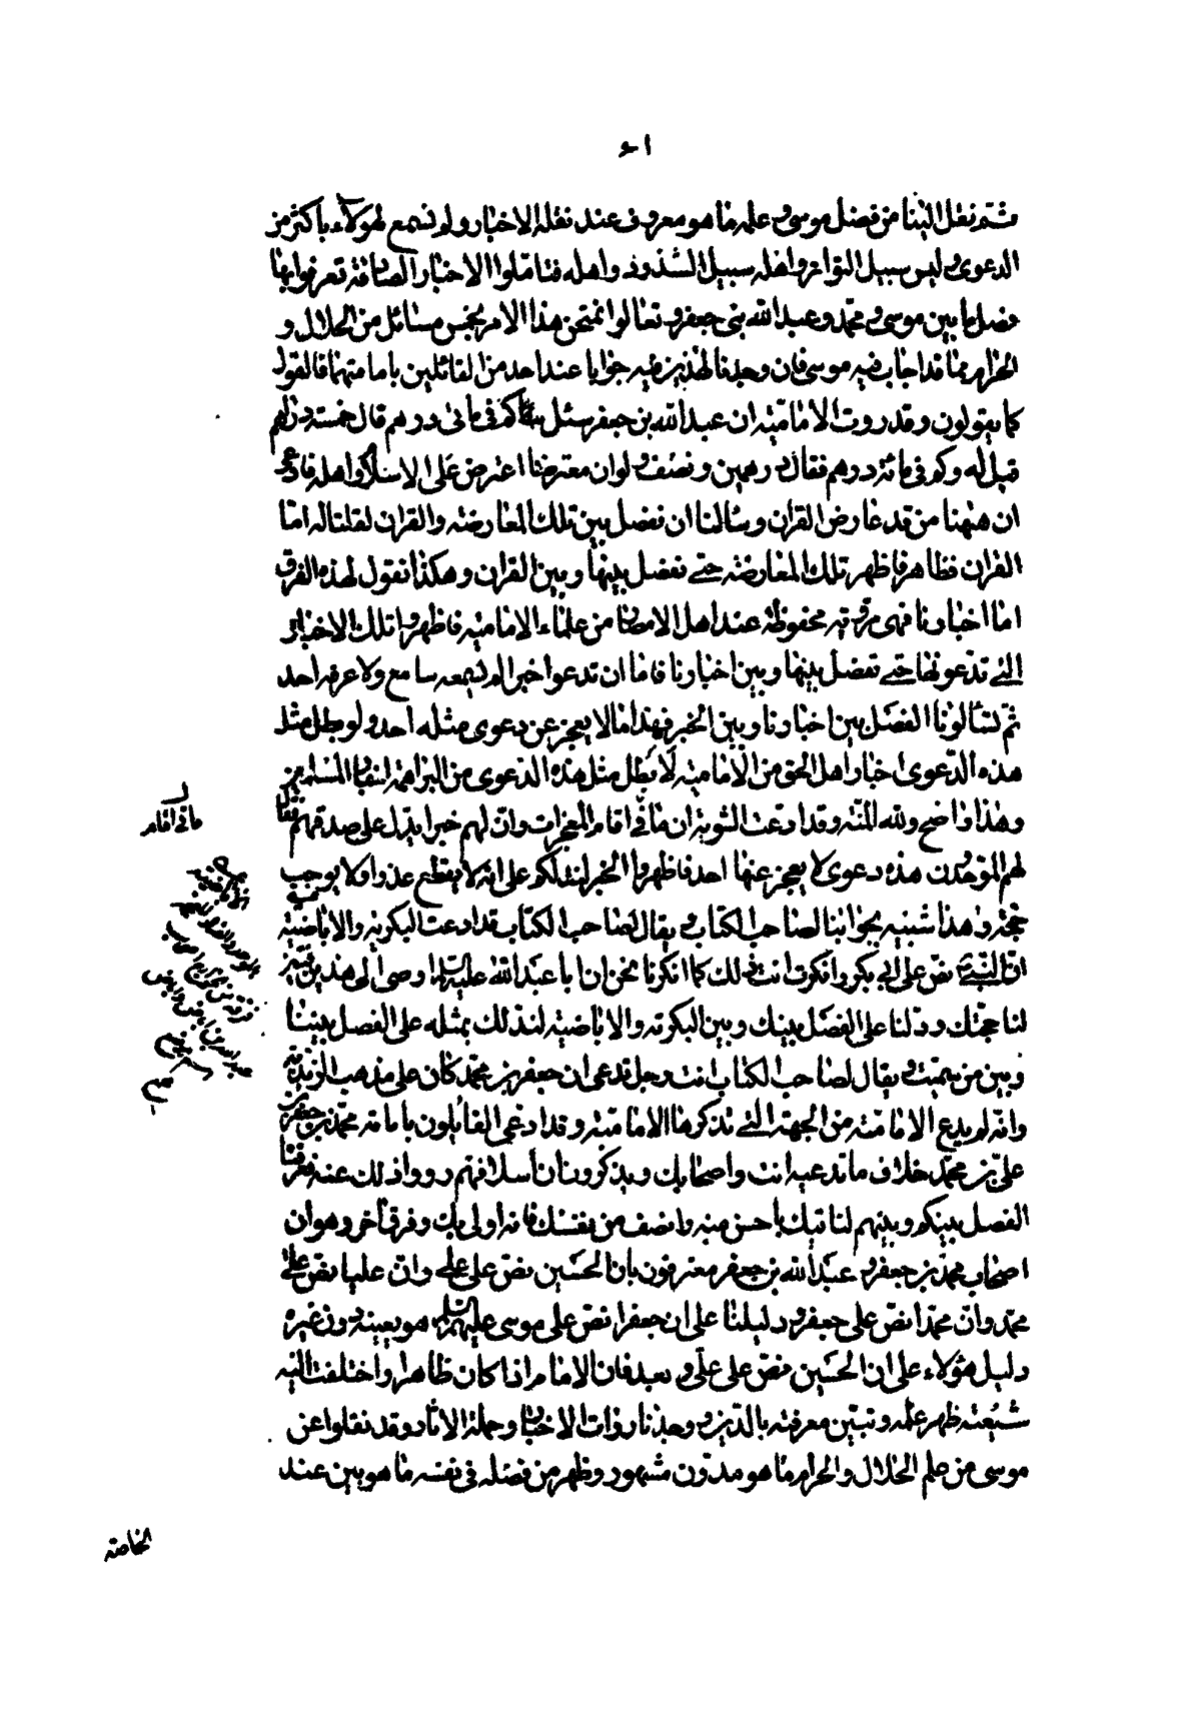 ثم نقل الينا من فضل موسى و علمه ما هو معروف عند نقلة الاخبار ولم نسمع لهؤلاء باكثر من
الدعوى وليس سبيل التواتر واهله سبيل الشذوذ واهله فتاملوا الاخبار الصادقة تعرفوا بها
فصل ما بين موسى و محمد وعبد الله بنى جعفر و تعالوا نمتحن هذا الامر بخمس مسائل من الحلال و
الحرام مما قد اجاب فيه موسى فان وجدنا لهذين فيه جوابا عند احد من القائلين بامامتهما فالقول
كما يقولون وقد روت الامامية ان عبد الله بن جعفر سئل كم فى مأتى درهم قال خمسة دراهم
قيل له وكم فى مائة درهم فقال درهمين ونصف ولو ان معترضا اعترض على الاسلام واهله فادعى
ان ههنا من قد عارض القران وسالنا ان نفصل بين تلك المعارضة والقران لقلنا له اما
القران فظاهر فاظهر تلك المعارضة حتى نفصل بينها وبين القران وهكذا نقول لهذه الفرق
اما اخبارنا فهى مروية محفوظة عند اهل الامصار من علماء الامامية فاظهروا تلك الاخبار
التى تدعونها حتى نفصل بينها وبين اخبارنا فاما ان تدعوا خبرا لم يسمعه سامع ولا عرفه احد
ثم تسألونا الفصل بين اخبارنا وبين الخبر فهذا ما لا يعجز عن دعوى مثله احد ولو بطل مثل
هذه الدعوى اخبار اهل الحق من الامامية لابطل مثل هذه الدعوى من البراهمة اخبار المسلمين
وهذا واضح ولله المنة وقد ادعت الثنوية ان مانى اقام المعجزات وان لهم خبرا يدل على صدقهم فقال
لهم الموحدون هذه دعوى لا يعجز عنها احد فاظهروا الخبر لندلكم على انه لا يقطع عذرا ولا يوجب
حجة وهذا شبيه بجوابنا لصاحب الكتاب و يقال لصاحب الكتاب قد ادعت البكرية والاباضية
ان النبى نص على ابى بكر وانكرت انت ذلك كما انكرنا نحن ان ابا عبد الله عليه السلم اوصى الى هذين فبين
لنا حجتك ودلنا على الفصل بينك وبين البكرية والاباضية لندلك بمثله على الفصل بيننا
وبين من سميت و يقال لصاحب الكتاب انت رجل تدعى ان جعفر بن محمد كان على مذهب الزيدية
وانه لم يدع الامامة من الجهة التى تذكرها الامامية وقد ادعى القائلون بامامة محمد بن جعفر بن
على بن محمد خلاف ما تدعيه انت واصحابك ويذكرون ان اسلافهم رووا ذلك عنه فعرفنا
الفصل بينكم وبينهم لناتيك باحسن منه وانصف من نفسك فانه اولى بك وفرق آخر وهو ان
اصحاب محمد بن جعفر و عبد الله بن جعفر معترفون بان الحسين نص على على وان عليا نص على
محمد وان محمدا نص على جعفر و دليلنا على ان جعفرا نص على موسى عليهم السلم هو بعينه دون غيره
دليل هؤلاء على ان الحسين نص على على و بعد فان الامام اذا كان ظاهرا واختلفت اليه
شيعته ظهر علمه وتبين معرفته بالدين و وجدنا روات الاخبار وحملة الاثار وقد نقلوا عن
موسى من علم الحلال والحرام ما هو مدون مشهور وظهر من فضله فى نفسه ما هو بين عند
مانى اقام
الخاصة